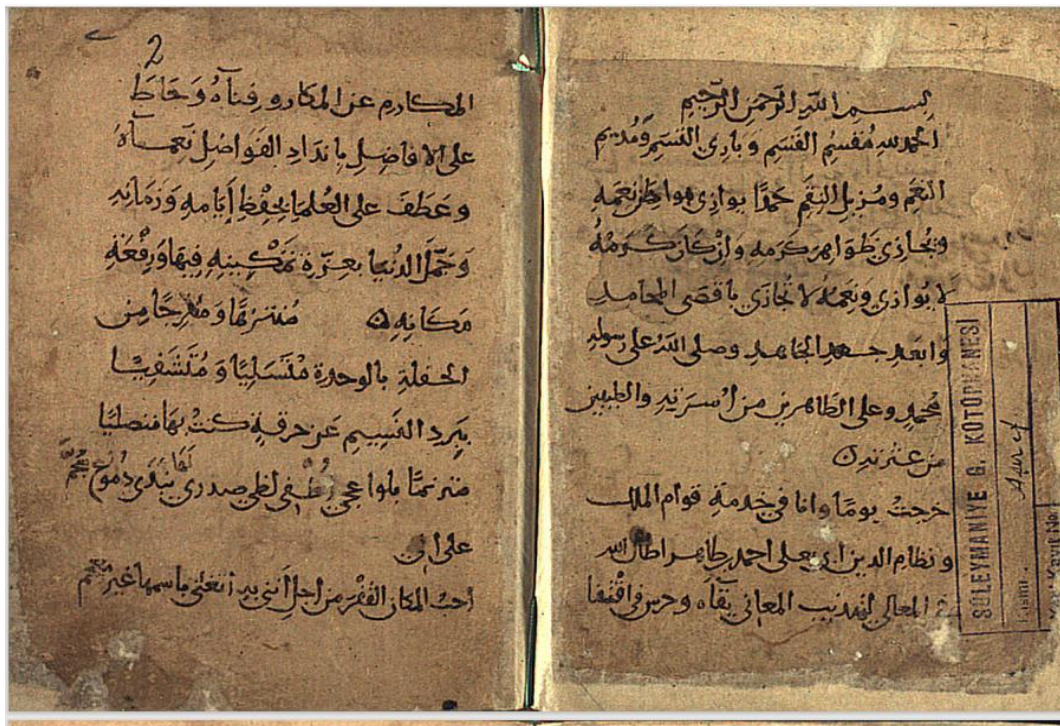 بسم الله الرحمن الرحيم
الحمد لله مقسم القسم وبارئ النسم ومديم
النعم ومزيل النقم حمدًا يوازي هواطل نعمه
ويجازي ظواهر كرمه وان كان كرمه
لا يوازى ونعمه لا تجازى باقصى المحامد
وابعد جهد الجاهد وصلى الله على رسوله
محمد وعلى الطاهرين من اسرته والطيبين
من عترته
خرجت يومًا وانا في خدمة قوام الملك
ونظام الدين ابي يعلى احمد طاهر اطال الله
في المعالي لتهذيب المعاني بقآه وحرس في اقتفا
SÜLEYMANİYE G. KÜTÜPHANESİ
Kısmı :
Yeni Kayıt No.
2
المكارم عن المكاره فنآه وحاط
على الافاضل بانداد الفواضل نعمآه
وعطف على العلما بحفظ أيامه وزمانه
وجمل الدنيا بعزة تمكينه فيها ورفعة
مكانه متنزهًا و من
الحفلة بالوحدة متسليًا ومتشفيًا
ببرد النسيم عن حرقة كنت بها متصليًا
مترنمًا بلواعجي لظى صدري دموع
على
أحب المكان القفر من اجل أنني به أتغنى باسمها غير معجم